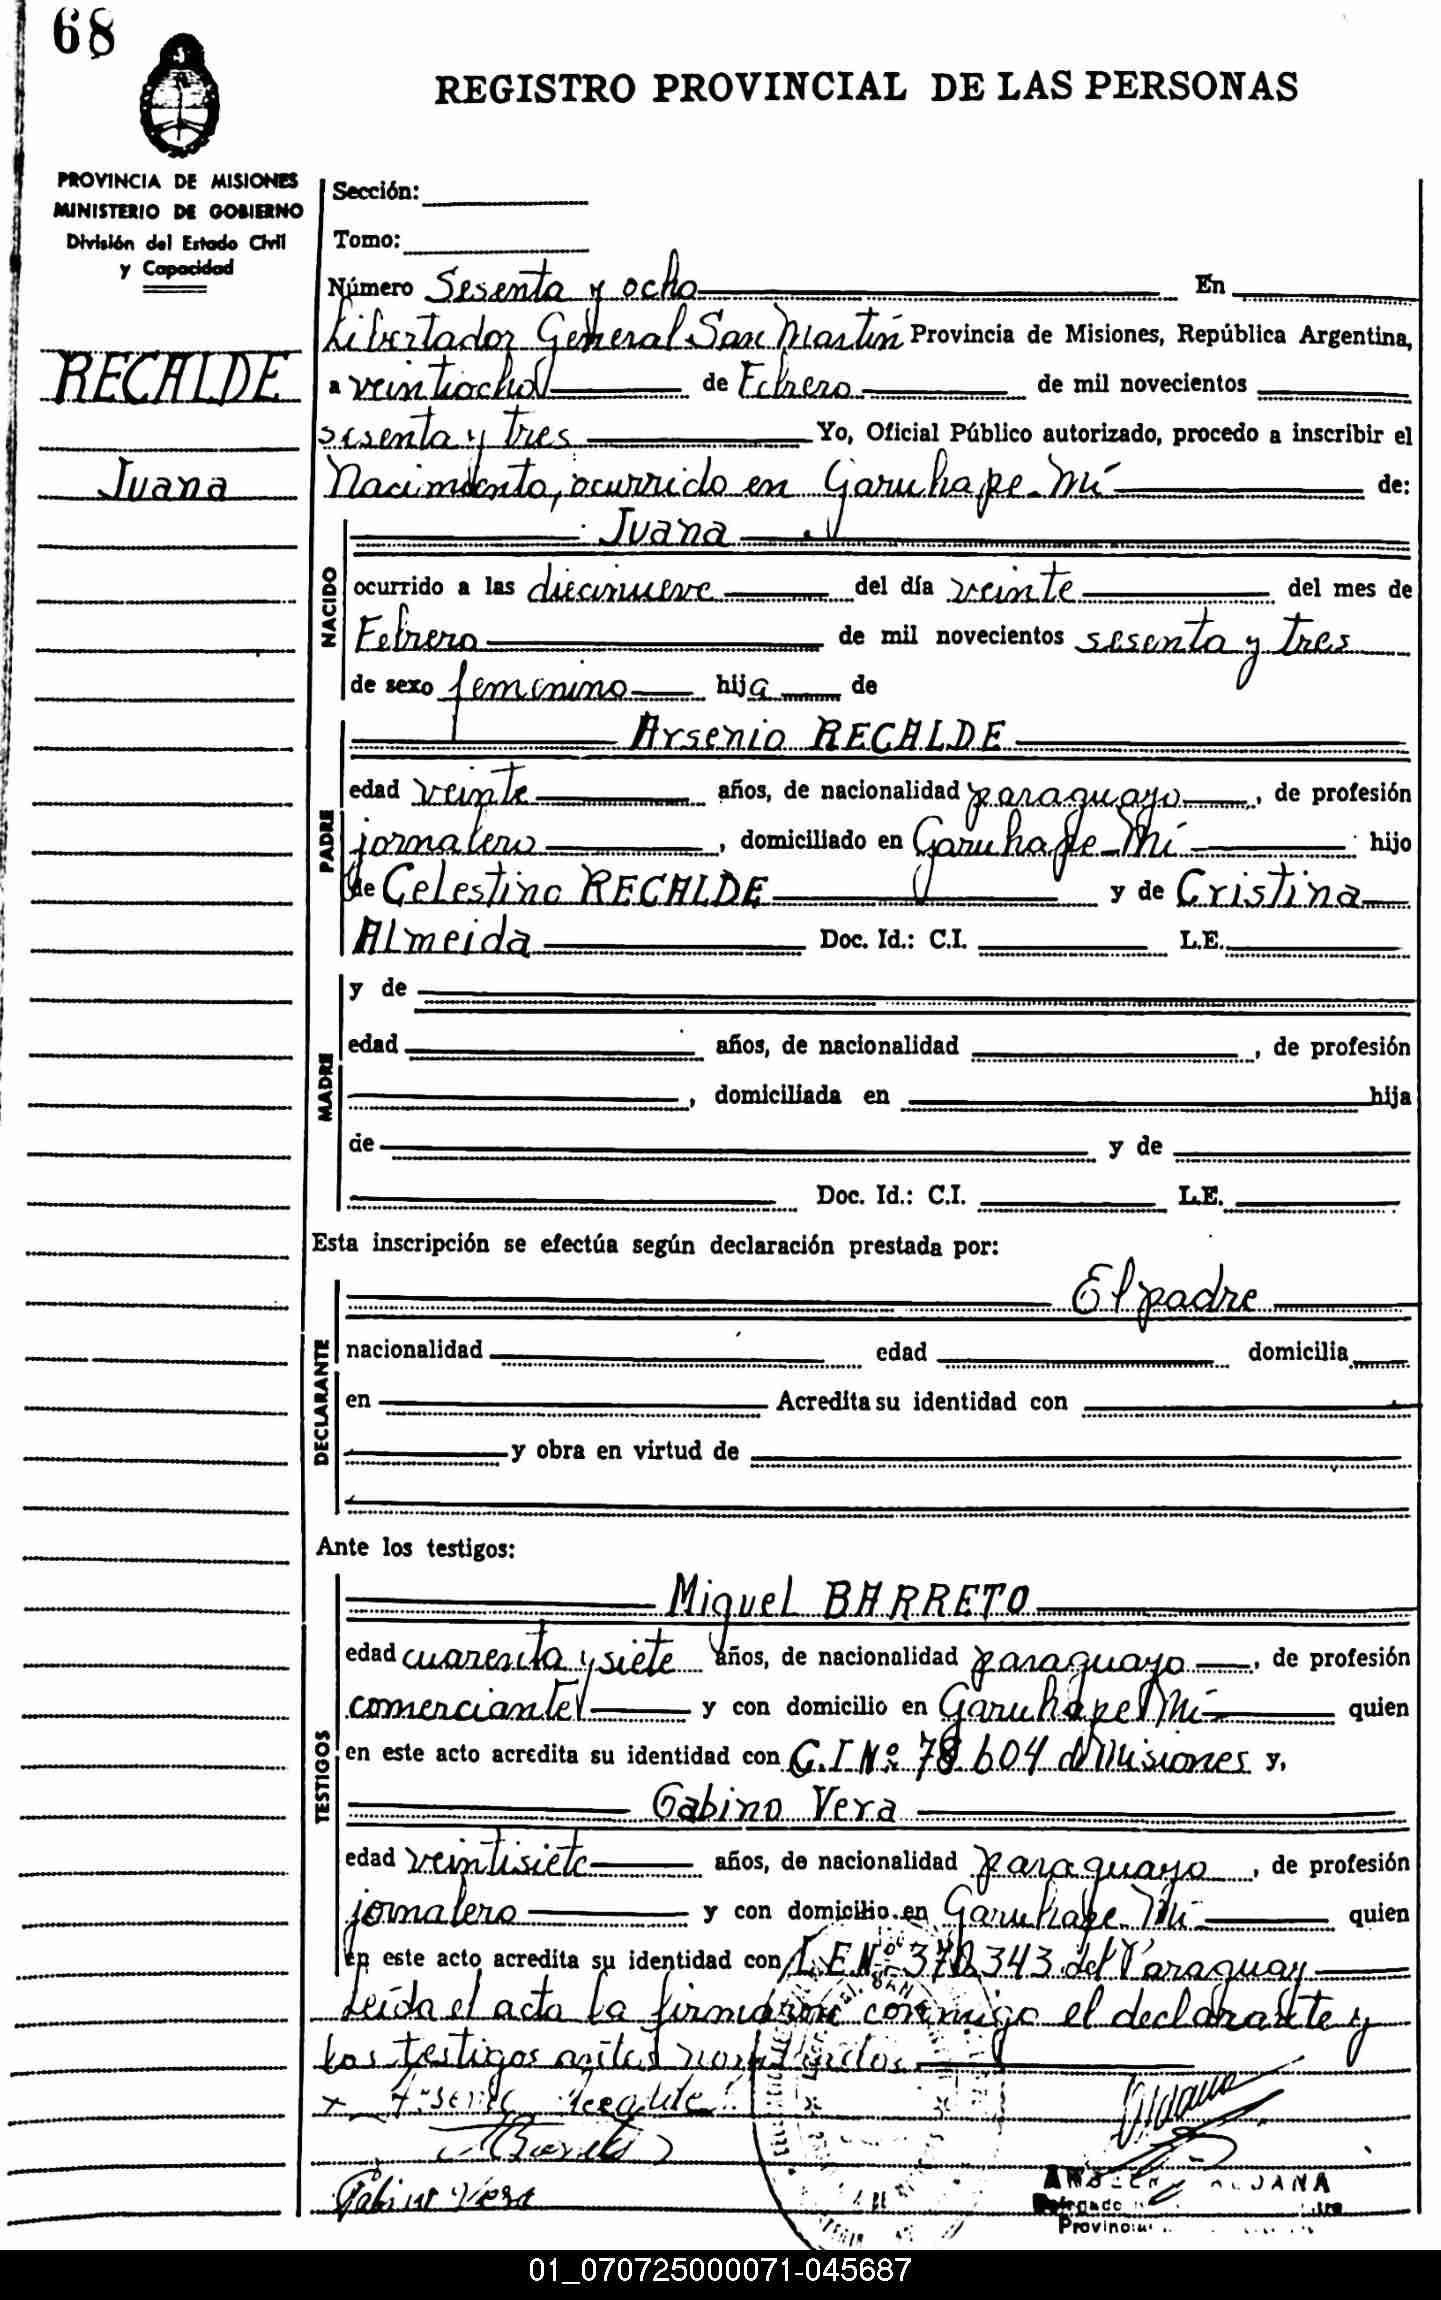 68
REGISTRO PROVINCIAL DE LAS PERSONAS
PROVINCIA DE MISIONES
MINISTERIO DE GOBIERNO
División del Estado Civil
y Capacidad
RECALDE
Juana
Sección:
Tomo:
Número Sesenta y ocho En
Libertador General San Martín Provincia de Misiones, República Argentina,
a veintiocho de Febrero de mil novecientos
sesenta y tres Yo, Oficial Público autorizado, procedo a inscribir el
Nacimiento, ocurrido en Garuhape-Mí de:
NACIDO
Juana
ocurrido a las diecinueve del día veinte del mes de
Febrero de mil novecientos sesenta y tres
de sexo femenino hija de
PADRE
Arsenio RECALDE
edad veinte años, de nacionalidad paraguayo, de profesión
jornalero, domiciliado en Garuhape-Mí hijo
de Celestino RECALDE y de Cristina
Almeida Doc. Id.: C.I. L.E.
MADRE
y de
edad años, de nacionalidad , de profesión
, domiciliada en hija
de y de
Doc. Id.: C.I. L.E.
Esta inscripción se efectúa según declaración prestada por:
DECLARANTE
El padre
nacionalidad edad domicilia
en Acredita su identidad con
y obra en virtud de
Ante los testigos:
TESTIGOS
Miguel BARRETO
edad cuarenta y siete años, de nacionalidad paraguayo, de profesión
comerciante y con domicilio en Garuhape Mí quien
en este acto acredita su identidad con C.I Nº 78.604 d Misiones y,
Gabino Vera
edad veintisiete años, de nacionalidad paraguayo, de profesión
jornalero y con domicilio en Garuhape-Mí quien
en este acto acredita su identidad con L.E.Nº 343 del Paraguay
Leída el acta la firmaron conmigo el declarante y
los testigos antes nombrados.
x Arsenio Recalde
Gabino Vera
Delegado
Provincial
01_070725000071-045687